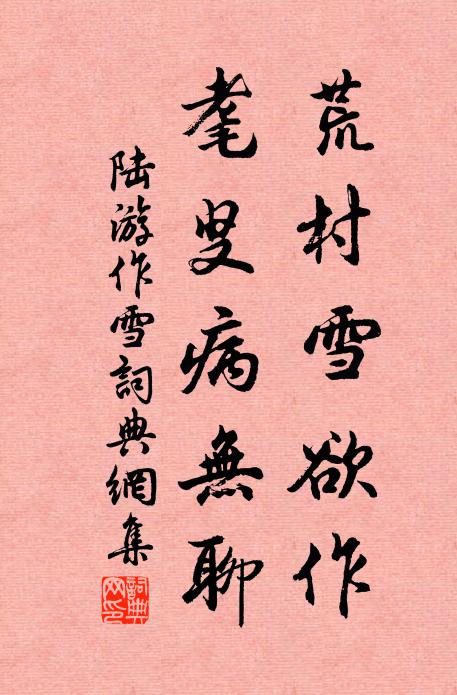 荒村雪欲作
耄叟病無聊
陆游作雪詞典網集
詞典网印